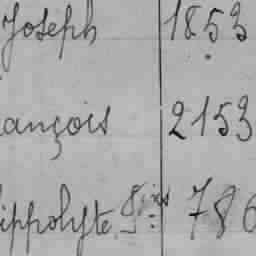 Joseph 1853
ançois 2153
ippolyte 786